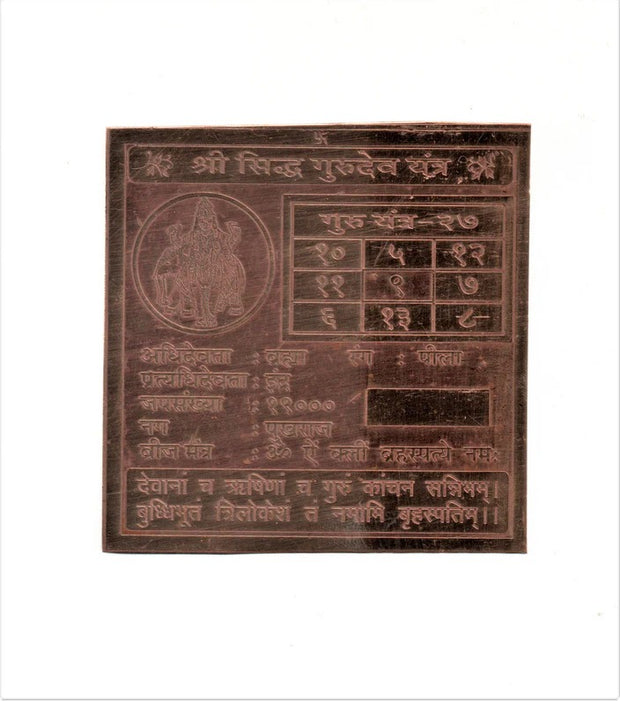 श्री सिद्ध गुरुदेव यंत्र
गुरु यंत्र-२७
१० ५ १२
११ ९ ७
६ १३ ८
अधिदेवता : ब्रह्मा रंग : पीला
प्रत्यधिदेवता : इंद्र
जापसंख्या : १९०००
नंग : पुखराज
बीज मंत्र : ॐ ऐं क्लीं ब्रहस्पत्ये नमः
देवानां च ऋषिणां च गुरुं कांचन सन्निभम्।
बुध्धिभूत त्रिलोकेशं तं नमामि बृहस्पतिम्।।